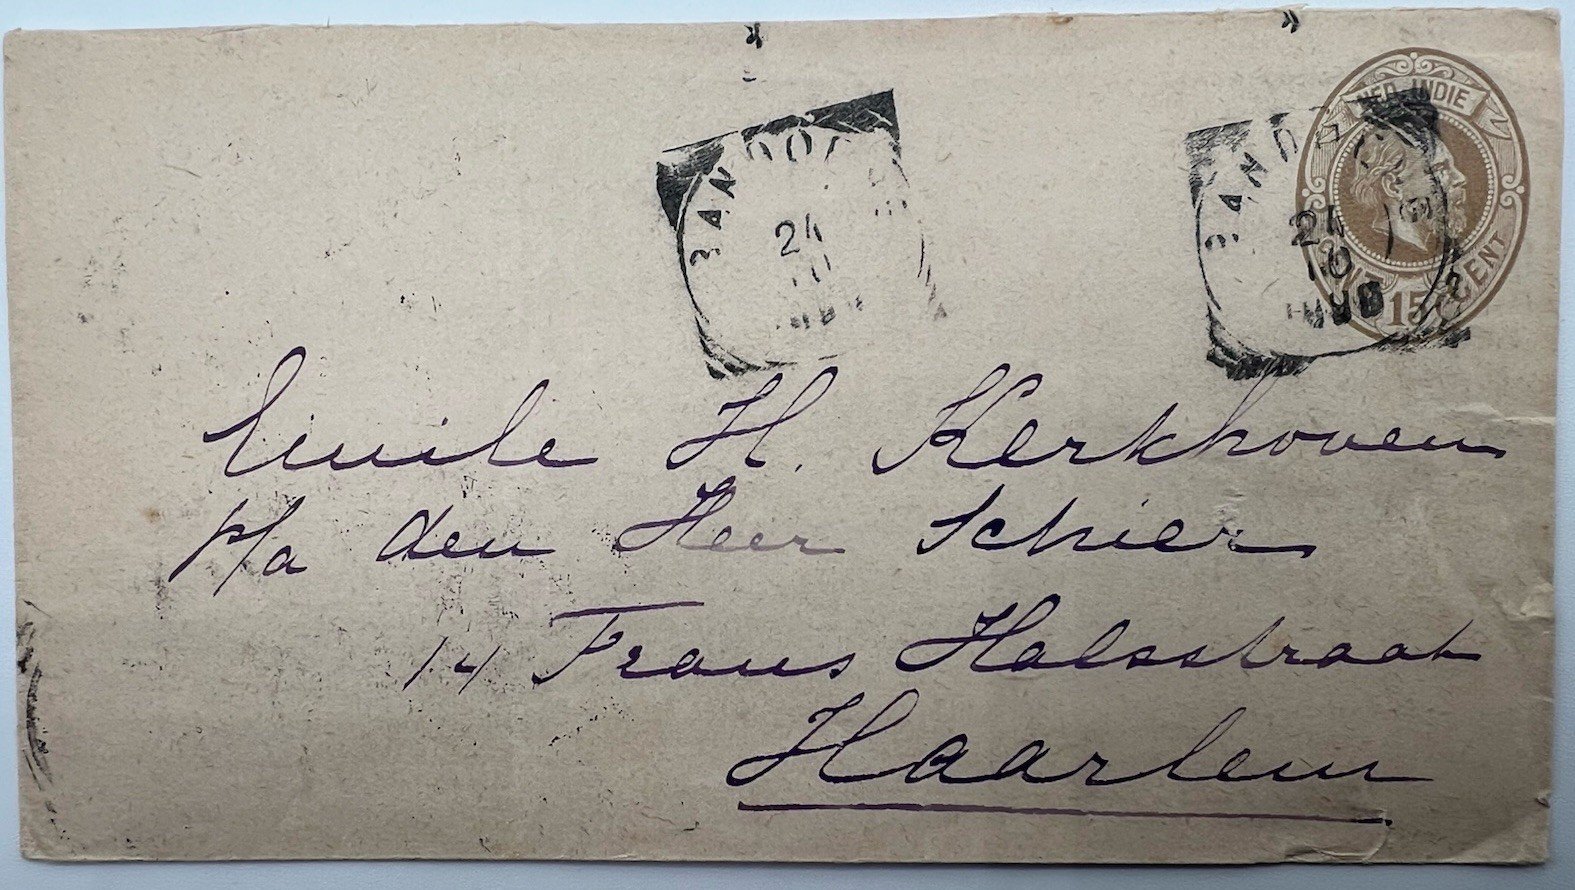 NED. INDIE
15 CENT
BANDOENG
24
10
Emile H. Kerkhoven
p/a den Heer Schier
14 Frans Halsstraat
Haarlem